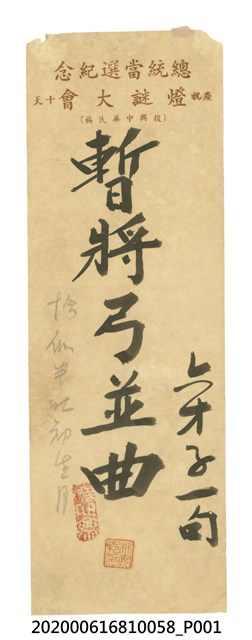 總統當選紀念
慶祝燈謎大會十天
〔復興中華民族〕
暫將弓並曲
六才子一句
恰似半吐初生月
202000616810058_P001